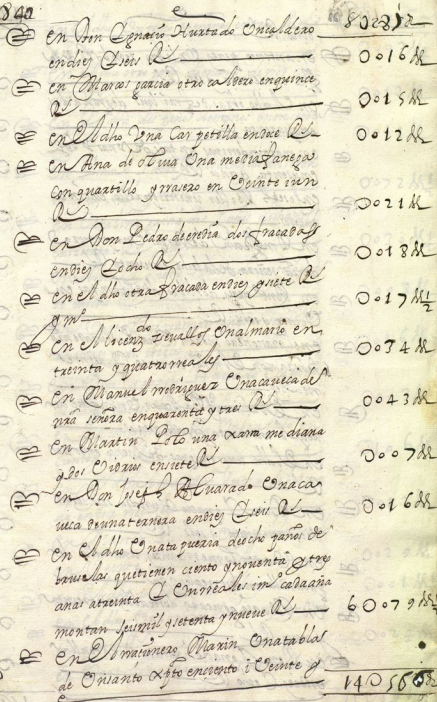 840
8028
en Don Ygnacio Hurtado un caldero
en diez y seis Rs 0016
en Marcos garcia otro caldero en quince
Rs 0015
en el dho Una Carpetilla en doce Rs 0012
en Ana de oliva Una media fanega
con quartillo y rasero en Veinte i un
Rs 0021
en Don Pedro de eredia dos fracadas
en diez y ocho Rs 0018
en el dho otra fracada en diez y siete Rs
y mo 0017 1/2
en el licenzdo zevallos Un almario en
treinta y quatro rreales 0034
en Manuel rrodriguez Una caveca de
nra señora en quarenta y tres Rs 0043
en Martin Polo una xarra mediana
y dos Vidrios en siete Rs 0007
en Don Joseph Albarado Una ca
veca de una ternera en diez y seis Rs 0016
en el dho Una tapiceria de ocho paños de
bruselas que tienen ciento y noventa y tres
anas a treinta y Un rreales i mo cada ana
montan seis mil y setenta y nueve Rs 60079
en el rracionero Marin Una tabla
de Un santo xpto en ciento i Veinte y